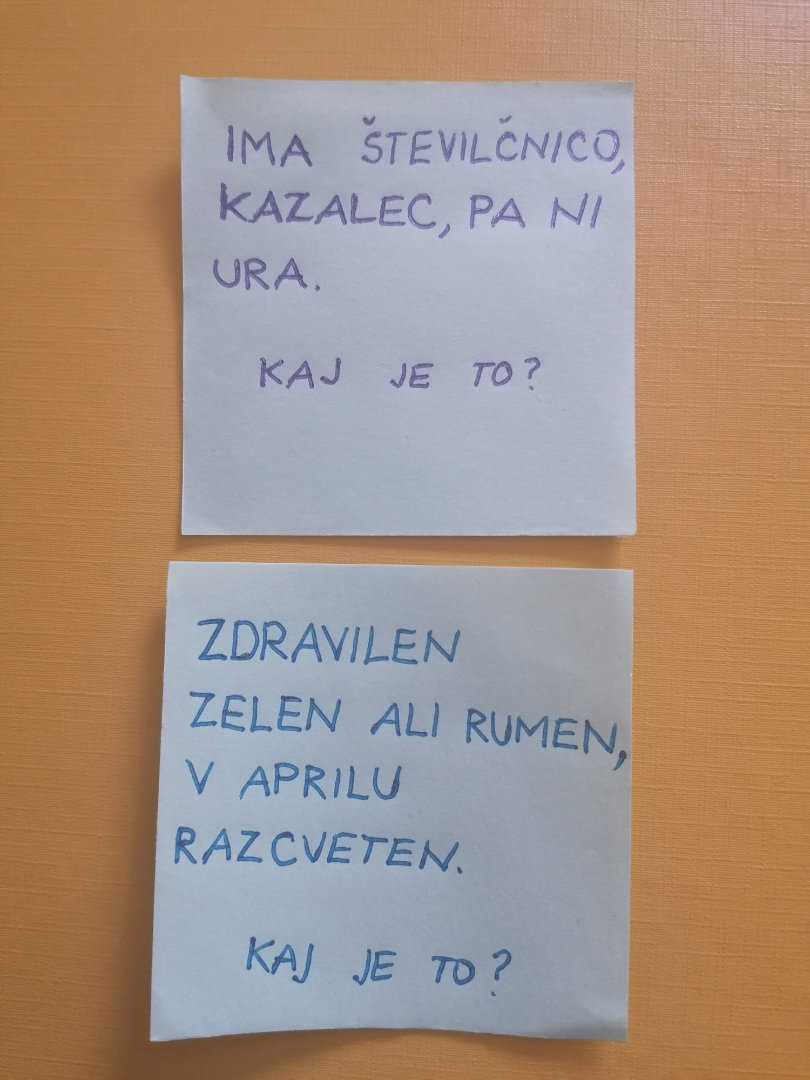 IMA ŠTEVILČNICO,
KAZALEC, PA NI
URA.
KAJ JE TO?
ZDRAVILEN
ZELEN ALI RUMEN,
V APRILU
RAZCVETEN.
KAJ JE TO?